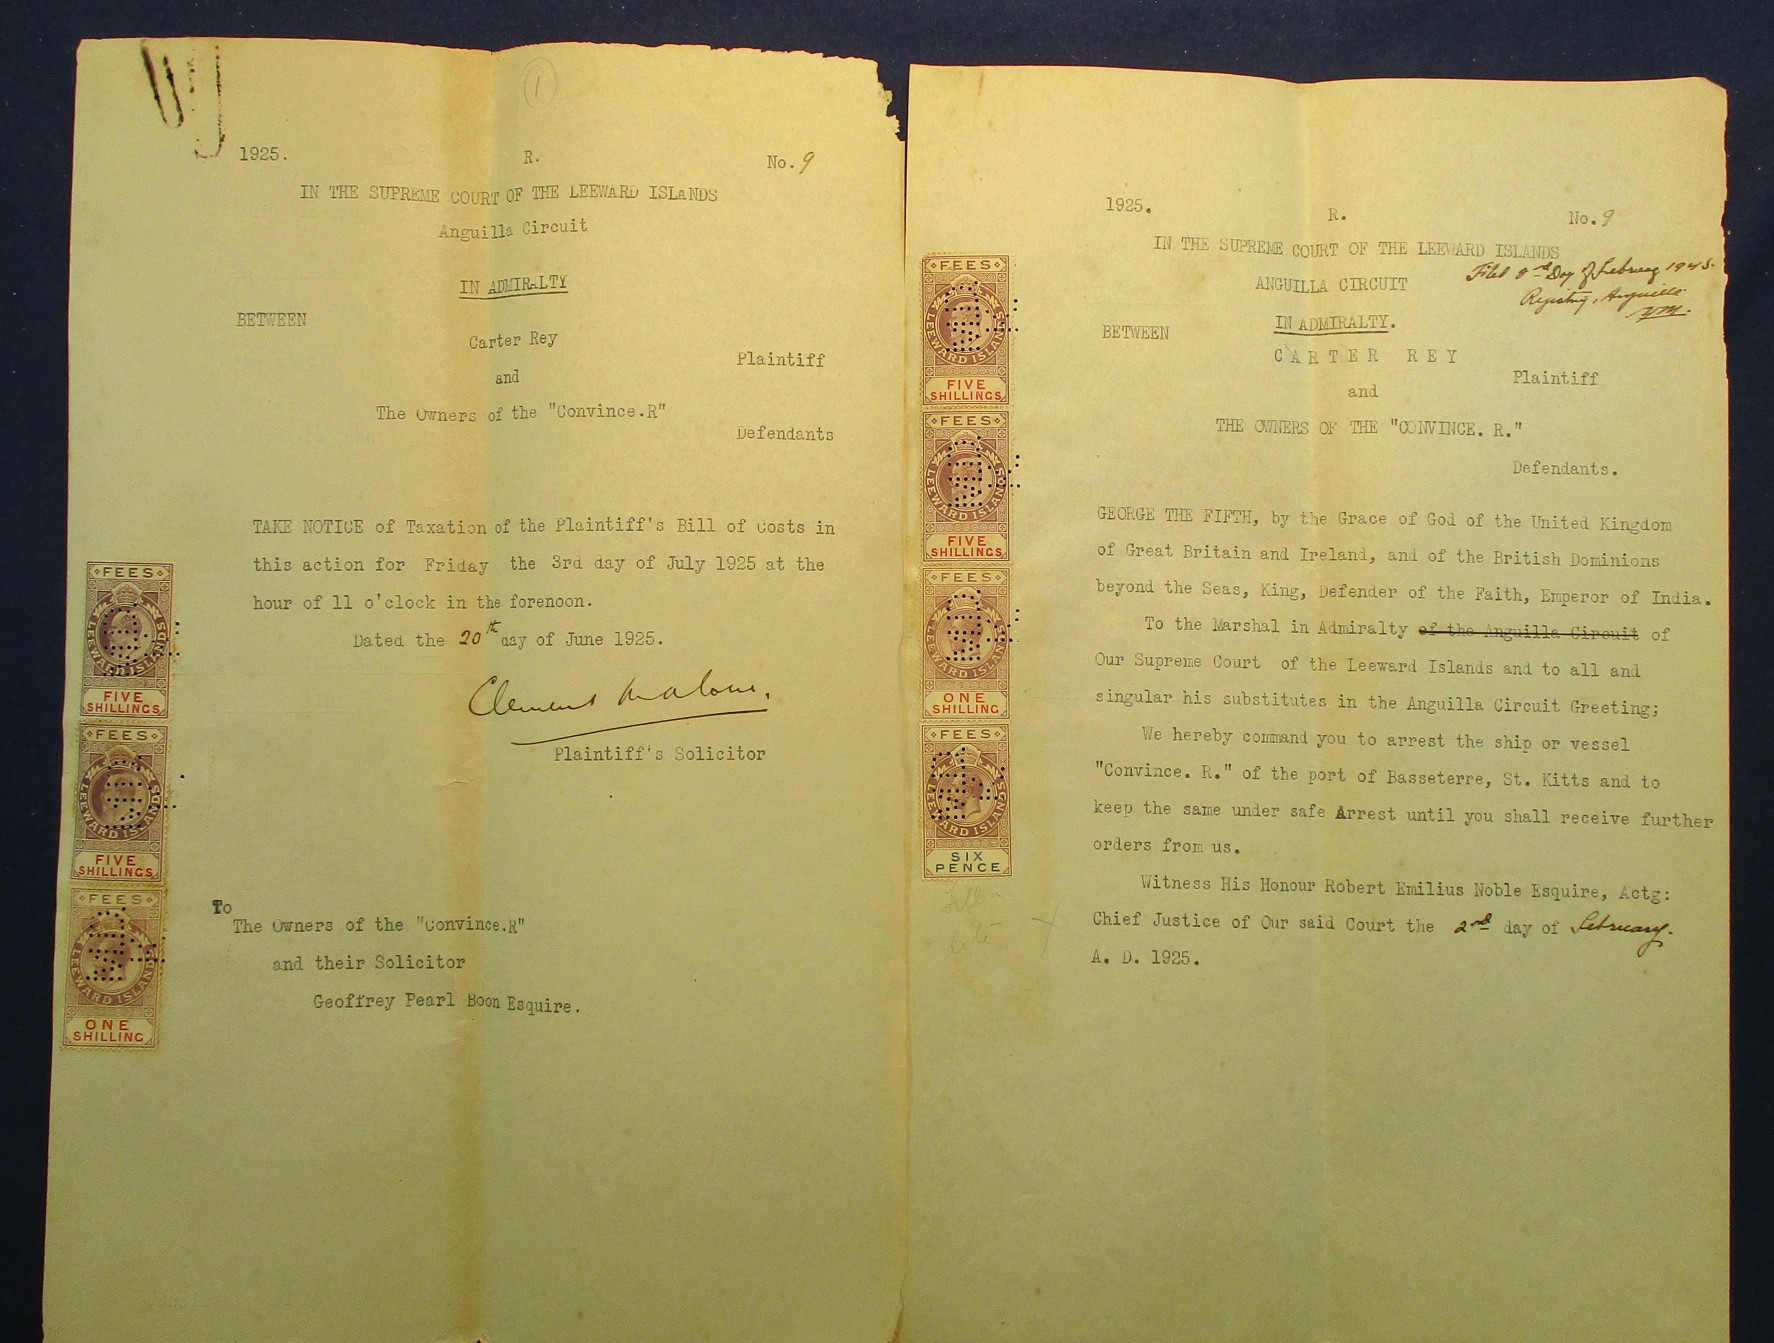 1
1925. R. No. 9
IN THE SUPREME COURT OF THE LEEWARD ISLANDS
Anguilla Circuit
IN ADMIRALTY
BETWEEN
Carter Rey
Plaintiff
and
The Owners of the "Convince.R"
Defendants
TAKE NOTICE of Taxation of the Plaintiff's Bill of Costs in
this action for Friday the 3rd day of July 1925 at the
hour of 11 o'clock in the forenoon.
Dated the 20th day of June 1925.
Clement Malone.
Plaintiff's Solicitor
To
The Owners of the "Convince.R"
and their Solicitor
Geoffrey Pearl Boon Esquire.
FEES
LEEWARD ISLANDS
FIVE
SHILLINGS
FEES
LEEWARD ISLANDS
FIVE
SHILLINGS
FEES
LEEWARD ISLANDS
ONE
SHILLING
1925. R. No. 9
IN THE SUPREME COURT OF THE LEEWARD ISLANDS
Filed Day of February
Registry, Anguilla
ANGUILLA CIRCUIT
IN ADMIRALTY.
BETWEEN
CARTER REY
Plaintiff
and
THE OWNERS OF THE "CONVINCE. R."
Defendants.
GEORGE THE FIFTH, by the Grace of God of the United Kingdom
of Great Britain and Ireland, and of the British Dominions
beyond the Seas, King, Defender of the Faith, Emperor of India.
To the Marshal in Admiralty of the Anguilla Circuit of
Our Supreme Court of the Leeward Islands and to all and
singular his substitutes in the Anguilla Circuit Greeting;
We hereby command you to arrest the ship or vessel
"Convince. R." of the port of Basseterre, St. Kitts and to
keep the same under safe Arrest until you shall receive further
orders from us.
Witness His Honour Robert Emilius Noble Esquire, Actg:
Chief Justice of Our said Court the 2nd day of February.
A. D. 1925.
FEES
LEEWARD ISLANDS
FIVE
SHILLINGS
FEES
LEEWARD ISLANDS
FIVE
SHILLINGS
FEES
LEEWARD ISLANDS
ONE
SHILLING
FEES
LEEWARD ISLANDS
SIX
PENCE